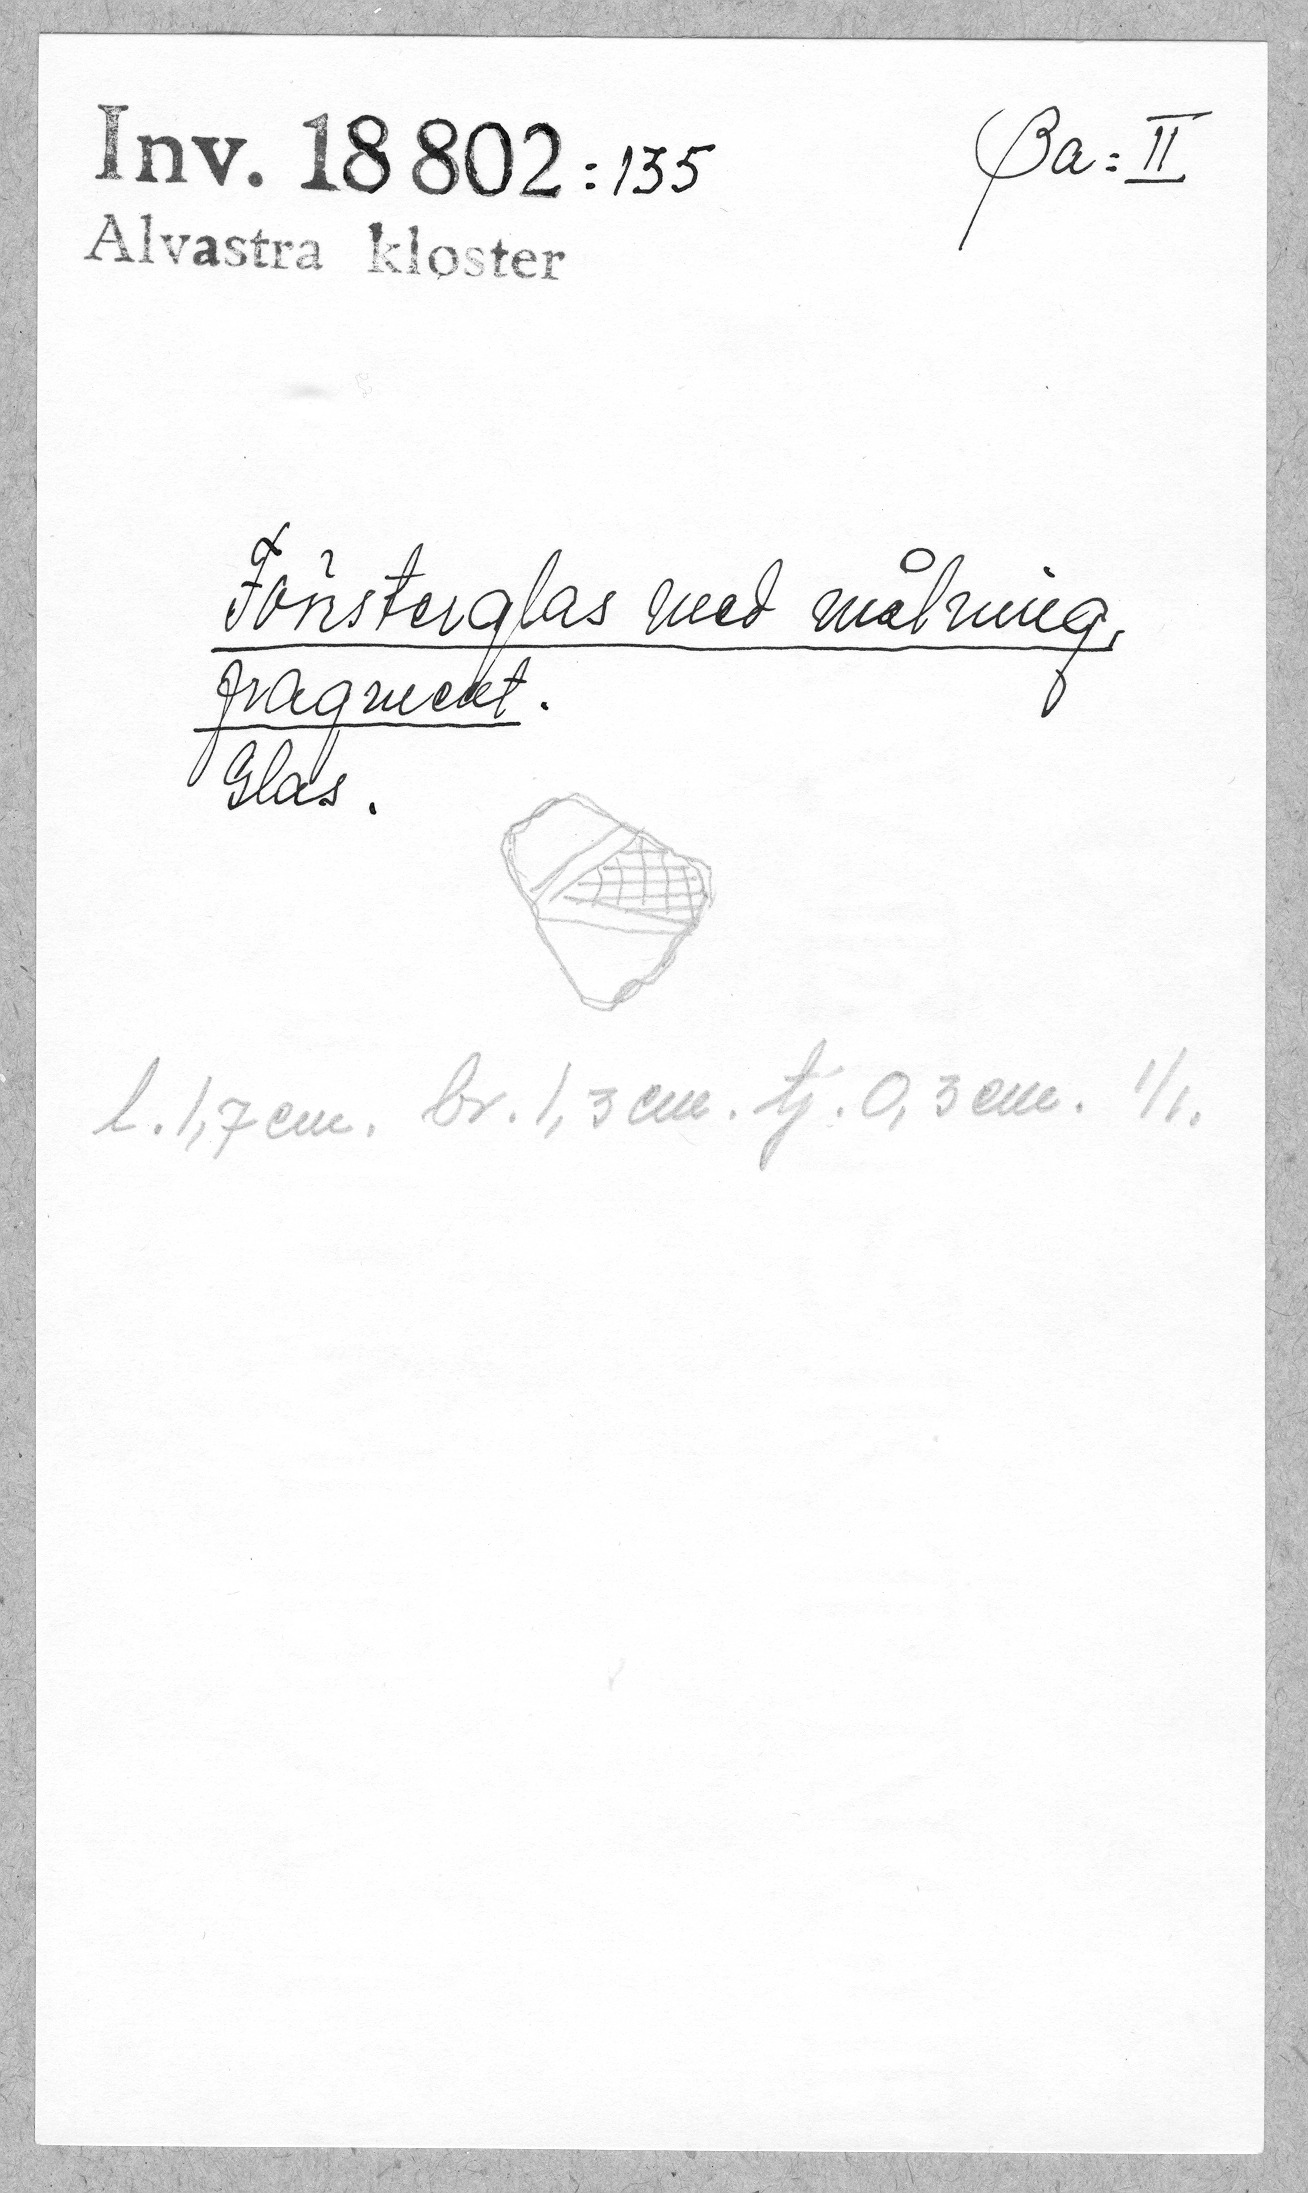 Inv. 18 802:135
βa: II
Alvastra kloster
Fönsterglas med målning,
fragment.
Glas.
l. 1,7 cm. br. 1,3 cm. tj. 0,3 cm. 1/1.